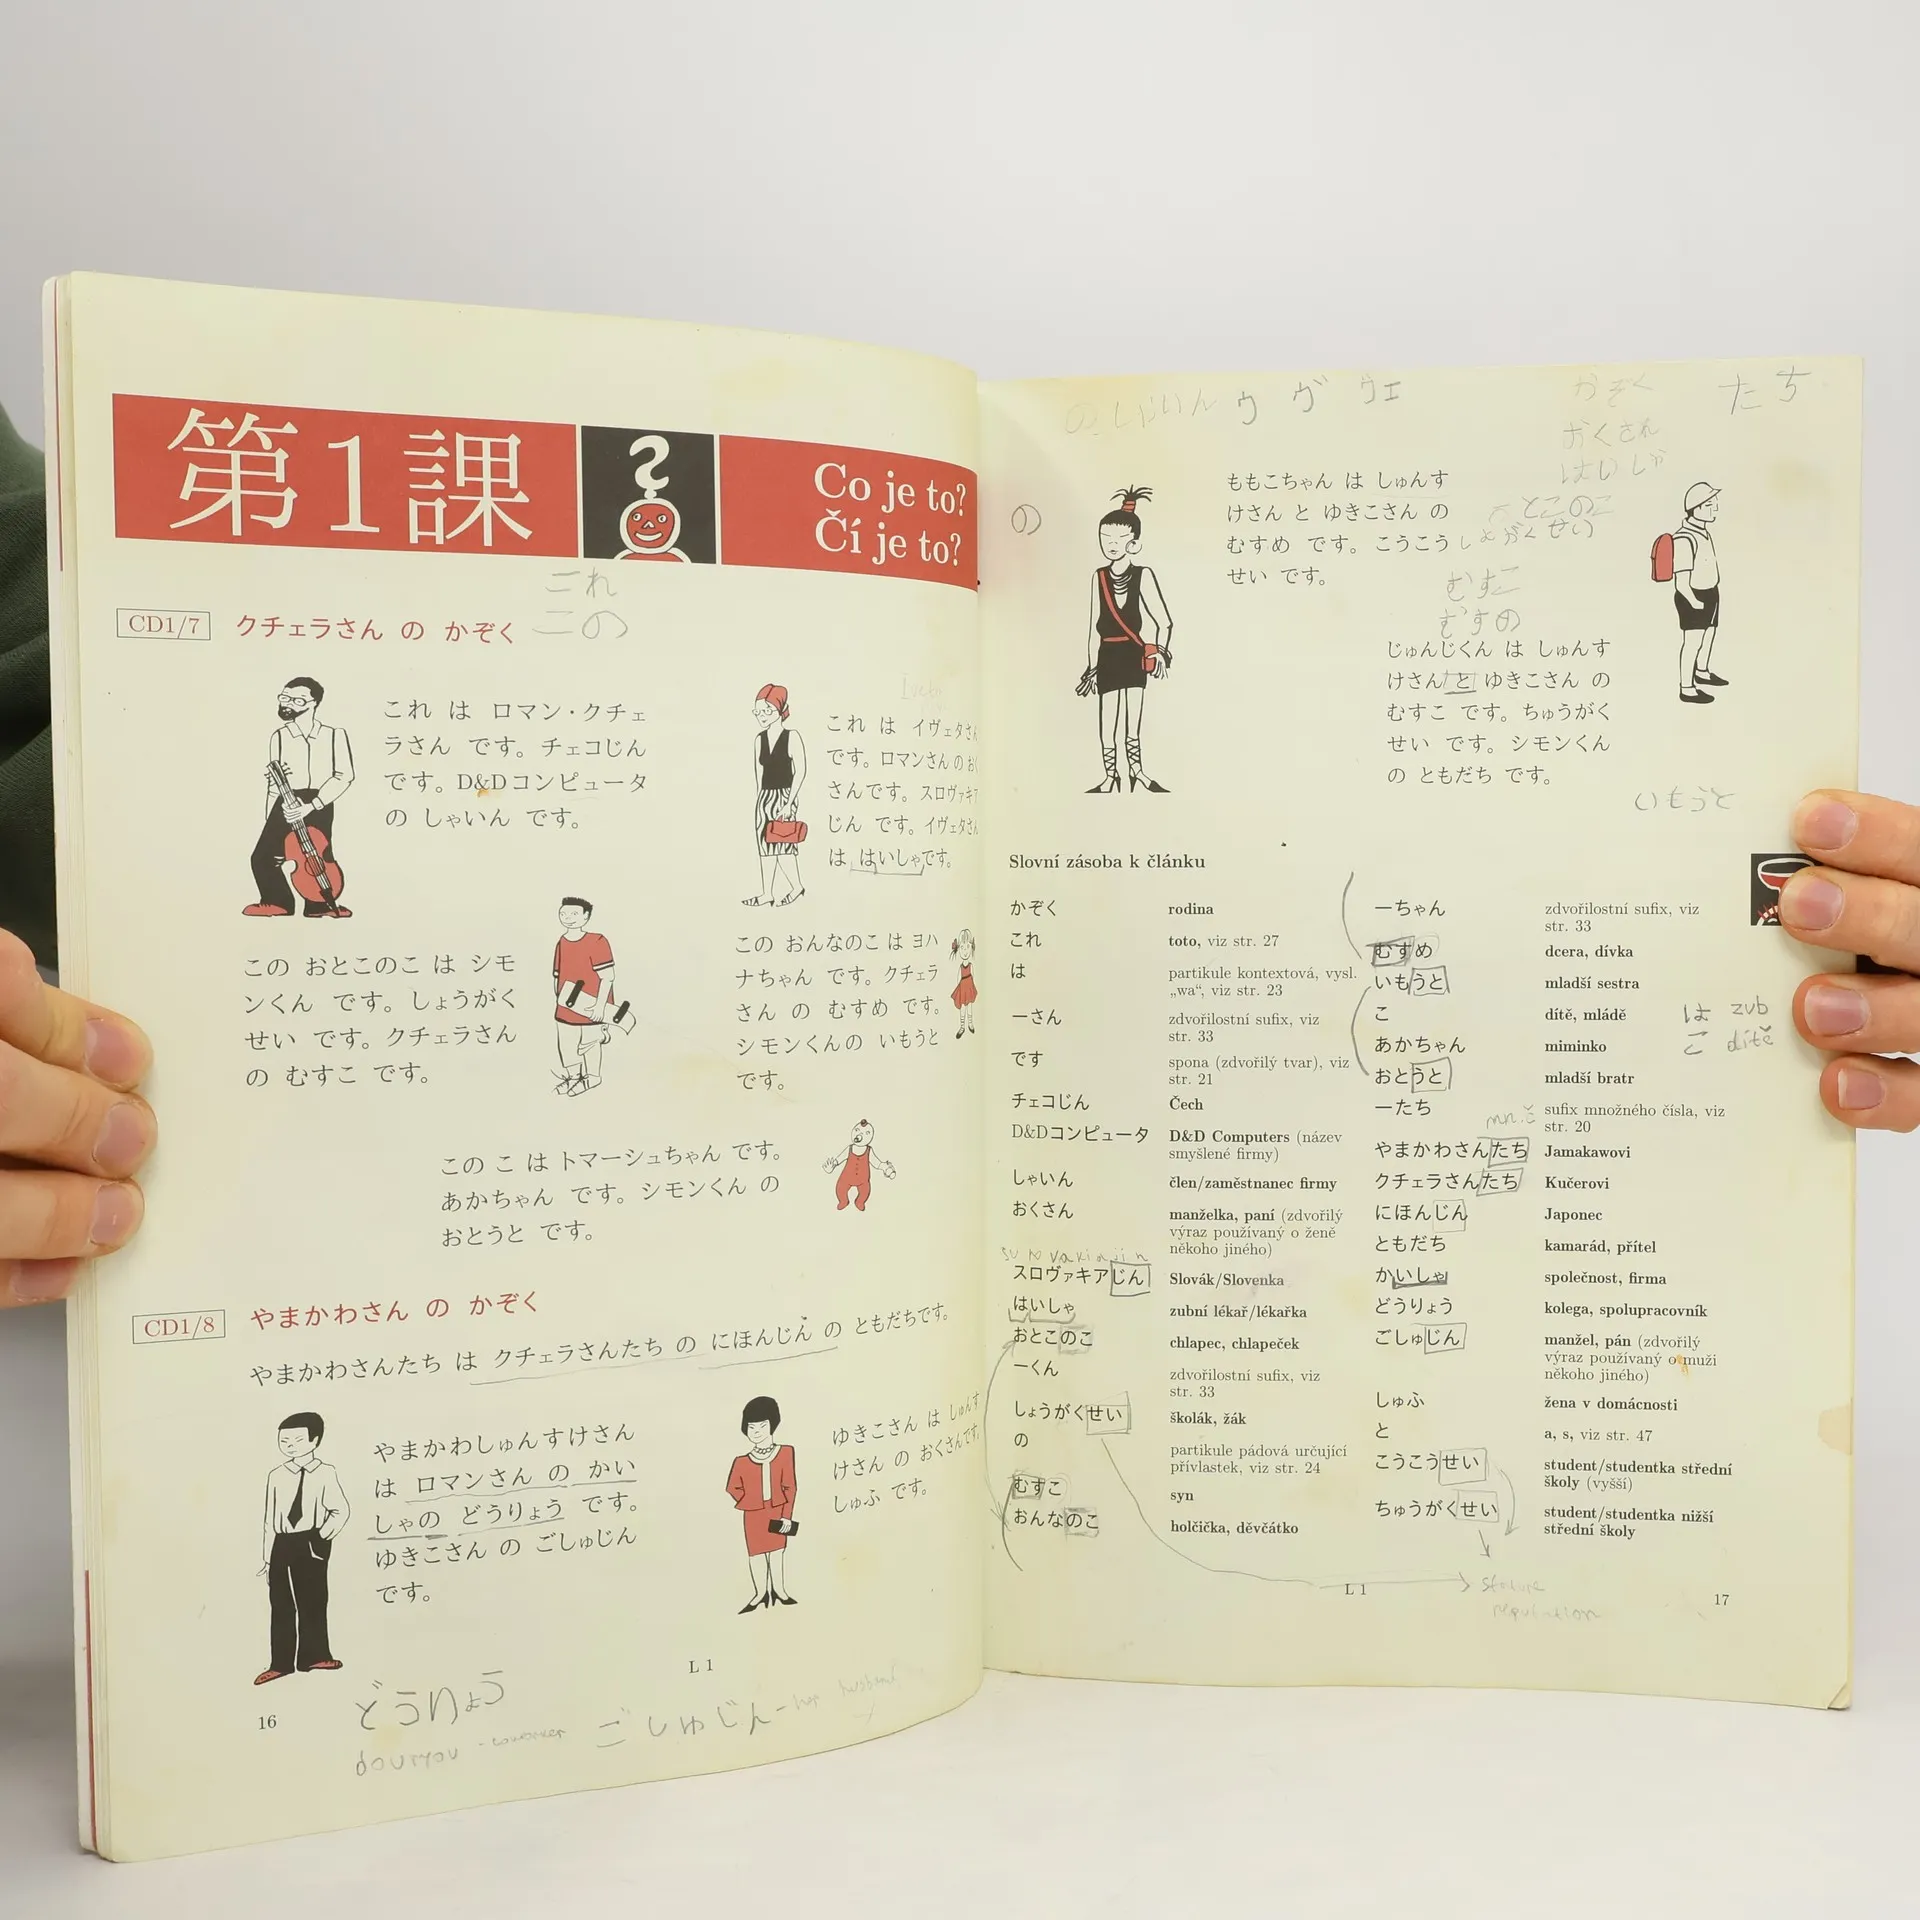 第1課
Co je to?
Čí je to?
これ
この
CD1/7 クチェラさん の かぞく
これ は ロマン・クチェ
ラさん です。チェコじん
です。D&Dコンピュータ
の しゃいん です。
これ は イヴェタさん
です。ロマンさん の おく
さんです。スロヴァキア
じん です。イヴェタさん
は はいしゃです。
この おとこのこ は シモ
ンくん です。しょうがく
せい です。クチェラさん
の むすこ です。
この おんなのこ は ヨハ
ナちゃん です。クチェラ
さん の むすめ です。
シモンくんの いもうと
です。
この こ は トマーシュちゃん です。
あかちゃん です。シモンくん の
おとうと です。
CD1/8 やまかわさん の かぞく
やまかわさんたち は クチェラさんたち の にほんじん の ともだちです。
やまかわしゅんすけさん
は ロマンさん の かい
しゃの どうりょう です。
ゆきこさん の ごしゅじん
です。
ゆきこさん は しゅんす
けさん の おくさんです。
しゅふ です。
L 1
16
どうりょう
douryou - coworker
ごしゅじん - husband
のしゃいん ウ ヴ ヴェ
かぞく
たち
おくさん
はいしゃ
とこのこ
しょがくせい
の
ももこちゃん は しゅんす
けさん と ゆきこさん の
むすめ です。こうこう
せい です。
むすこ
むすの
じゅんじくん は しゅんす
けさん と ゆきこさん の
むすこ です。ちゅうがく
せい です。シモンくん
の ともだち です。
いもうと
Slovní zásoba k článku
かぞく rodina
これ toto, viz str. 27
は partikule kontextová, vysl.
„wa“, viz str. 23
ーさん zdvořilostní sufix, viz
str. 33
です spona (zdvořilý tvar), viz
str. 21
チェコじん Čech
D&Dコンピュータ D&D Computers (název
smyšlené firmy)
しゃいん člen/zaměstnanec firmy
おくさん manželka, paní (zdvořilý
výraz používaný o ženě
někoho jiného)
surovakiajin
スロヴァキアじん Slovák/Slovenka
はいしゃ zubní lékař/lékařka
おとこのこ chlapec, chlapeček
ーくん zdvořilostní sufix, viz
str. 33
しょうがくせい školák, žák
の partikule pádová určující
přívlastek, viz str. 24
むすこ syn
おんなのこ holčička, děvčátko
ーちゃん zdvořilostní sufix, viz
str. 33
むすめ dcera, dívka
いもうと mladší sestra
こ dítě, mládě
あかちゃん miminko
おとうと mladší bratr
ーたち sufix množného čísla, viz
str. 20
mn.č
やまかわさんたち Jamakawovi
クチェラさんたち Kučerovi
にほんじん Japonec
ともだち kamarád, přítel
かいしゃ společnost, firma
どうりょう kolega, spolupracovník
ごしゅじん manžel, pán (zdvořilý
výraz používaný o muži
někoho jiného)
しゅふ žena v domácnosti
と a, s, viz str. 47
こうこうせい student/studentka střední
školy (vyšší)
ちゅうがくせい student/studentka nižší
střední školy
は zub
こ dítě
L 1
17